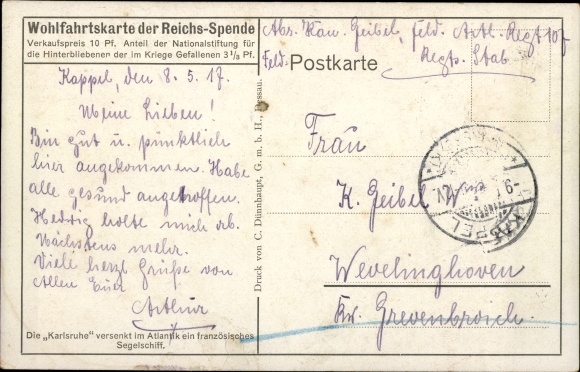 Wohlfahrtskarte der Reichs-Spende
Verkaufspreis 10 Pf. Anteil der Nationalstiftung für
die Hinterbliebenen der im Kriege Gefallenen 3 1/3 Pf.
Kappel, den 8. 5. 17.
Meine Lieben!
Bin gut u. pünktlich
hier angekommen. Habe
alle gesund angetroffen.
Hedwig holte mich ab.
Nächstens mehr.
Viele herzl Grüße von
Allen Euer
Arthur
Die „Karlsruhe" versenkt im Atlantik ein französisches
Segelschiff.
Druck von C. Dünnhaupt, G. m. b. H., Dessau.
Abs. Kan. Geibel, feld. Artl. Regt 107
Regts. Stab
Feld-Postkarte
Frau
K. Geibel Wwe
Wevelinghoven
Kr. Grevenbroich.
KAPPEL